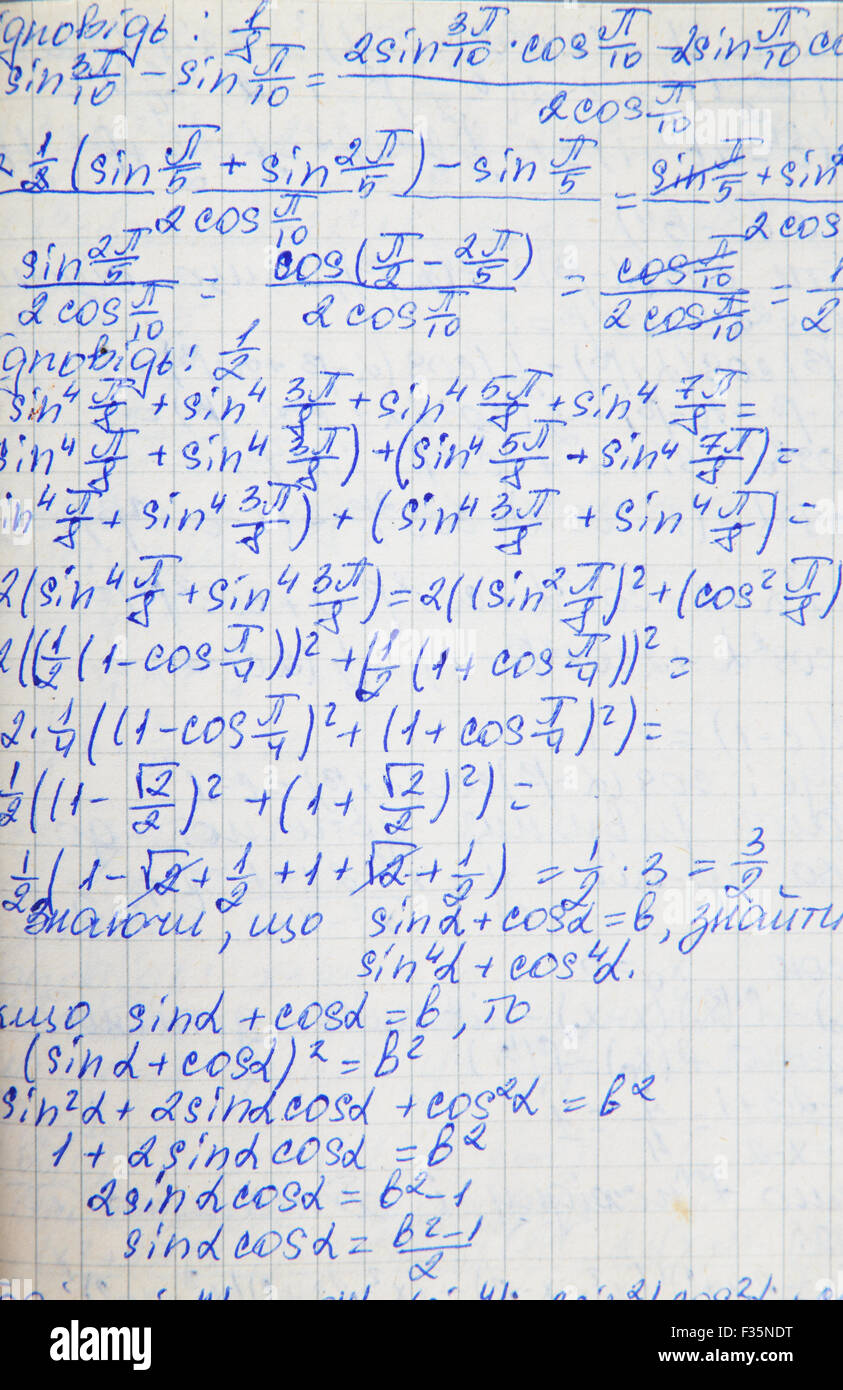 дповідь: 1/8
sin 3π/10 − sin π/10 = (2sin 3π/10 · cos π/10 − 2sin π/10 co
2cos π/10
1/2 (sin π/5 + sin 2π/5) − sin π/5 = sin π/5 + sin
2cos π/10 2cos
sin 2π/5 / 2cos π/10 = cos(π/2 − 2π/5) / 2cos π/10 = cos π/10 / 2cos π/10 = 1/2
дповідь: 1/2
sin⁴ π/8 + sin⁴ 3π/8 + sin⁴ 5π/8 + sin⁴ 7π/8 =
sin⁴ π/8 + sin⁴ 3π/8) + (sin⁴ 5π/8 + sin⁴ 7π/8) =
in⁴ π/8 + sin⁴ 3π/8) + (sin⁴ 3π/8 + sin⁴ π/8) =
2(sin⁴ π/8 + sin⁴ 3π/8) = 2((sin² π/8)² + (cos² π/8)
2((1/2(1−cos π/4))² + (1/2(1+cos π/4))² =
2·1/4((1−cos π/4)² + (1+cos π/4)²) =
1/2((1−√2/2)² + (1+√2/2)²) =
1/2(1−√2+1/2+1+√2+1/2) = 1/2·3 = 3/2
Знаючи, що sinα+cosα=в, знайти
sin⁴α+cos⁴α.
кщо sinα+cosα=в, то
(sinα+cosα)²=в²
sin²α+2sinαcosα+cos²α=в²
1+2sinαcosα=в²
2sinαcosα=в²−1
sinαcosα=(в²−1)/2
alamy
F35NDT
www.alamy.com